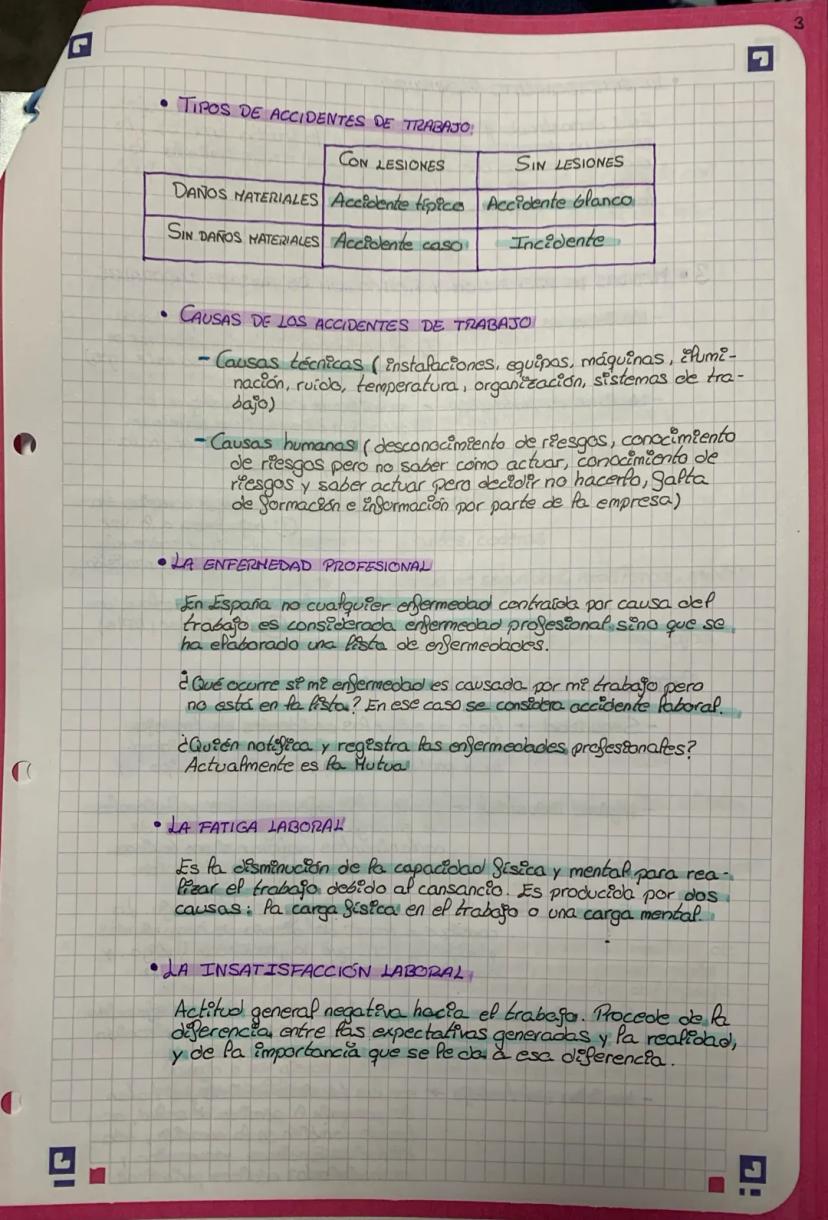 3
• TIPOS DE ACCIDENTES DE TRABAJO:
CON LESIONES SIN LESIONES
DAÑOS MATERIALES Accidente típico Accidente blanco
SIN DAÑOS MATERIALES Accidente caso Incidente
• CAUSAS DE LOS ACCIDENTES DE TRABAJO
- Causas técnicas (instalaciones, equipos, máquinas, ilumi-
nación, ruido, temperatura, organización, sistemas de tra-
bajo)
- Causas humanas (desconocimiento de riesgos, conocimiento
de riesgos pero no saber como actuar, conocimiento de
riesgos y saber actuar pero decidir no hacerlo, falta
de formación e información por parte de la empresa)
• LA ENFERMEDAD PROFESIONAL
En España no cualquier enfermedad contraída por causa del
trabajo es considerada enfermedad profesional, sino que se
ha elaborado una lista de enfermedades.
¿Qué ocurre si mi enfermedad es causada por mi trabajo pero
no está en la lista? En ese caso se considera accidente laboral.
¿Quién notifica y registra las enfermedades profesionales?
Actualmente es la Mutua
• LA FATIGA LABORAL
Es la disminución de la capacidad física y mental para rea-
lizar el trabajo debido al cansancio. Es producida por dos
causas: la carga física en el trabajo o una carga mental.
• LA INSATISFACCIÓN LABORAL
Actitud general negativa hacia el trabajo. Procede de la
diferencia entre las expectativas generadas y la realidad,
y de la importancia que se le da a esa diferencia.